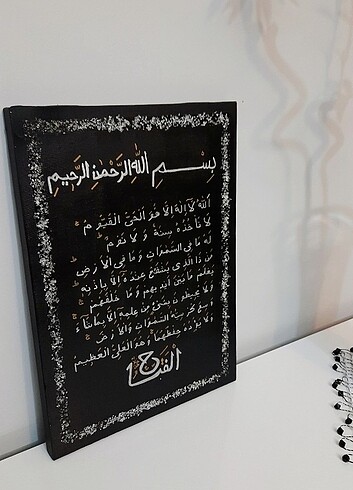 بِسْمِ اللّٰهِ الرَّحْمٰنِ الرَّحِيمِ
اَللّٰهُ لَا اِلٰهَ اِلَّا هُوَ الْحَيُّ الْقَيُّومُ
لَا تَأْخُذُهُ سِنَةٌ وَلَا نَوْمٌ
لَهُ مَا فِي السَّمٰوَاتِ وَمَا فِي الْاَرْضِ
مَنْ ذَا الَّذِي يَشْفَعُ عِنْدَهُ اِلَّا بِاِذْنِهِ
يَعْلَمُ مَا بَيْنَ اَيْدِيهِمْ وَمَا خَلْفَهُمْ
وَلَا يُحِيطُونَ بِشَيْءٍ مِنْ عِلْمِهِ اِلَّا بِمَا شَاءَ
وَسِعَ كُرْسِيُّهُ السَّمٰوَاتِ وَالْاَرْضَ
وَلَا يَؤُدُهُ حِفْظُهُمَا وَهُوَ الْعَلِيُّ الْعَظِيمُ